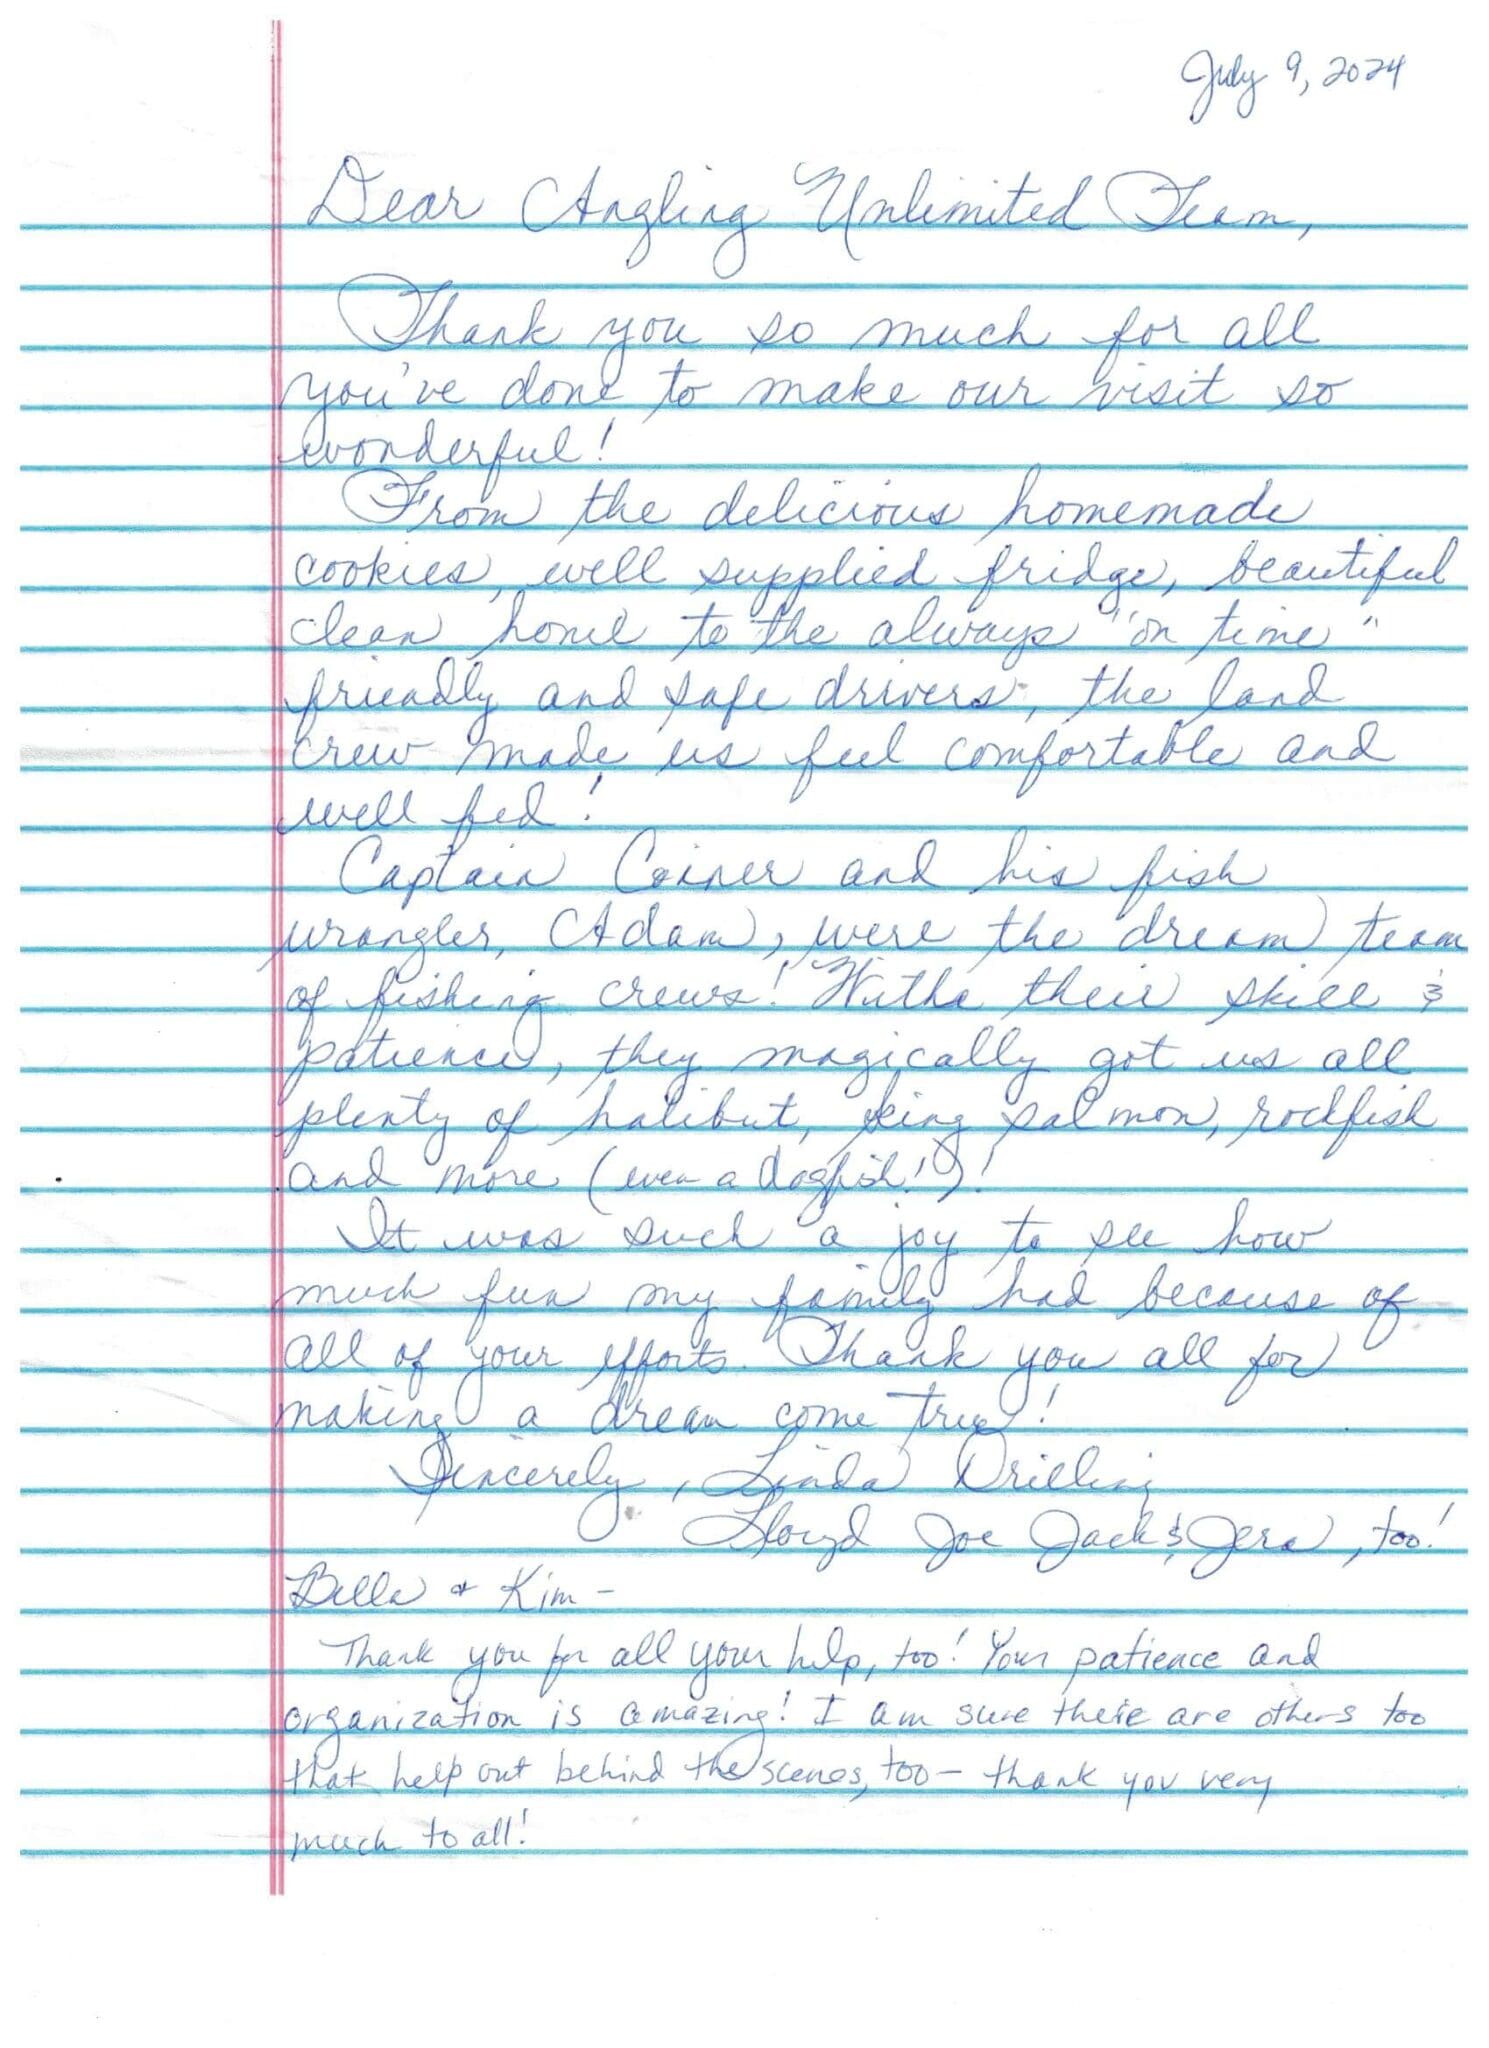 July 9, 2024
Dear Angling Unlimited Team,
Thank you so much for all
you've done to make our visit so
wonderful!
From the delicious homemade
cookies, well supplied fridge, beautiful
clean home to the always "on time"
friendly and safe drivers, the land
crew made us feel comfortable and
well fed!
Captain Conner and his fish
wrangler, Adam, were the dream team
of fishing crews! Withe their skill &
patience, they magically got us all
plenty of halibut, king salmon, rockfish
and more (even a dogfish!)!
It was such a joy to see how
much fun my family had because of
all of your efforts. Thank you all for
making a dream come true!
Sincerely, Linda Drilling
Lloyd Joe Jack & Jera, too!
Bella & Kim -
Thank you for all your help, too! Your patience and
organization is amazing! I am sure there are others too
that help out behind the scenes, too - thank you very
much to all!